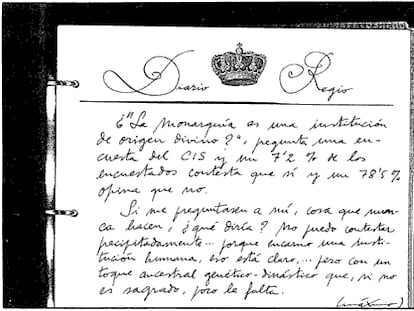 Diario Regio
¿"La Monarquía es una institución
de origen divino?", pegunta una en-
cuesta del CIS y un 7'2 % de los
encuestados contesta que sí y un 78'5 %
opina que no.
Si me preguntasen a mí, cosa que nun-
ca hacen, ¿qué diría? No puedo contestar
precipitadamente... porque encarno una insti-
tución humana, eso está claro,... pero con un
toque ancestral genético-dinástico que, si no
es sagrado, poco le falta.
Máximo